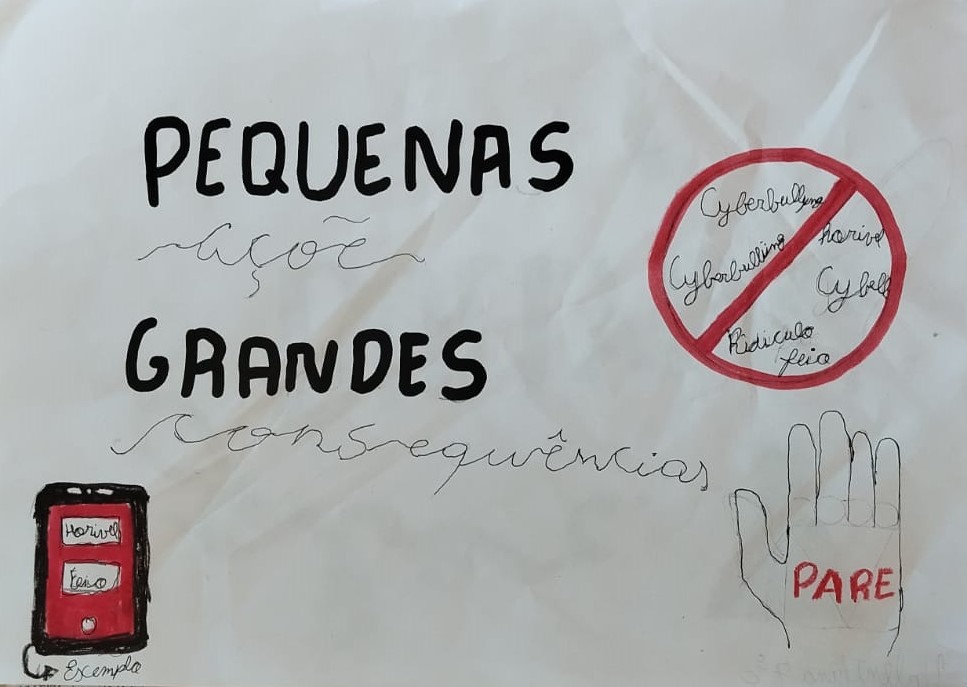 PEQUENAS
Açõe
GRANDES
Consequências
Cyberbullying
horivel
Cyberbulliing
Cybell
Ridiculo
feio
Horivel
Feio
Exemplo
PARE